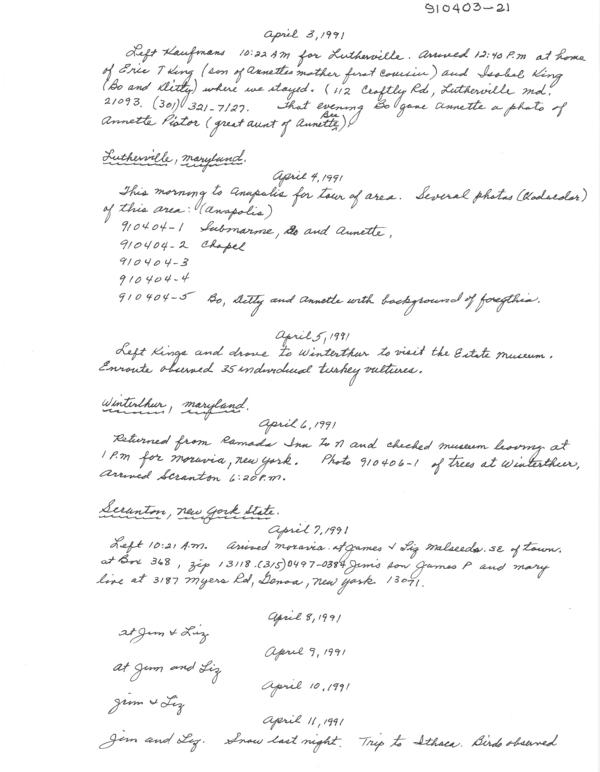 910403-21
April 3, 1991
Left Kaufmans 10:22 AM for Lutherville. Arrived 12:40 P.M at home
of Eric T King (son of Annettes mother first cousin) and Isabel King
(Bo and Ditty) where we stayed. (112 Croftly Rd, Lutherville md.
21093. (301) 321-7127. That evening Bo gave Annette a photo of
Annette Pistor (great aunt of Annette Bee).
Lutherville, maryland.
April 4, 1991
This morning to Anapolis for tour of area. Several photos (Kodacolor)
of this area: (Anapolis)
910404-1 Submarine, Bo and Annette,
910404-2 Chapel
910404-3
910404-4
910404-5 Bo, Ditty and Annette with background of forsythia.
April 5, 1991
Left Kings and drove to Winterthur to visit the Estate Museum.
Enroute observed 35 individual turkey vultures.
Winterthur, maryland.
April 6, 1991
Returned from Ramada Inn to and checked museum leaving at
1 P.M for moravia, new york. Photo 910406-1 of trees at Winterthur,
Arrived Scranton 6:20 P.M.
Scranton, New York State.
April 7, 1991
Left 10:21 A.M. Arived moravia at James & Liz Malseeds. SE of town.
at Box 368, zip 13118. (315) 0497-0384 Jim's son James P and mary
live at 3187 Myers Rd, Genoa, New York 13071.
April 8, 1991
at Jim & Liz
April 9, 1991
at Jim and Liz
April 10, 1991
Jim & Liz
April 11, 1991
Jim and Liz. Snow last night. Trip to Ithaca. Birds observed